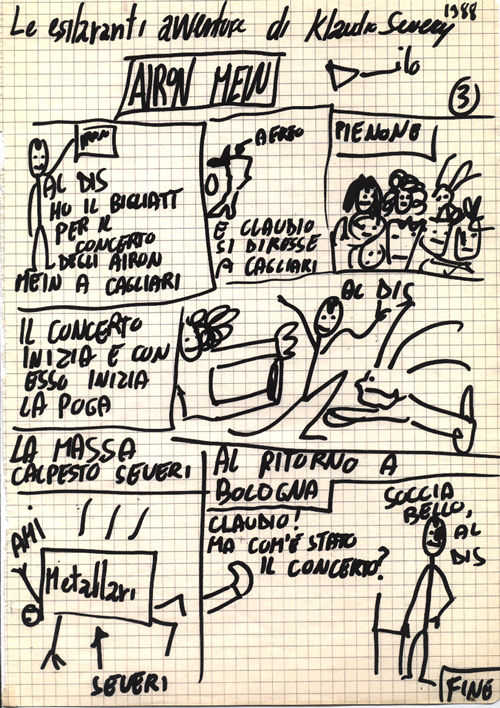 Le esilaranti avventure di Klaudio Severy 1988
AIRON MEIN
3
AIRON
AL DIS
HO IL BIGLIATT
PER IL
CONCERTO
DEGLI AIRON
MEIN A CAGLIARI
AEREO
E CLAUDIO
SI DIRESSE
A CAGLIARI
PIENONE
IL CONCERTO
INIZIA E CON
ESSO INIZIA
LA POGA
AL DIS
LA MASSA
CALPESTO SEVERI
AHI
Metallari
SEVERI
AL RITORNO A
BOLOGNA
CLAUDIO!
MA COM'È STATO
IL CONCERTO?
SOCCIA
BELLO,
AL
DIS
FINE